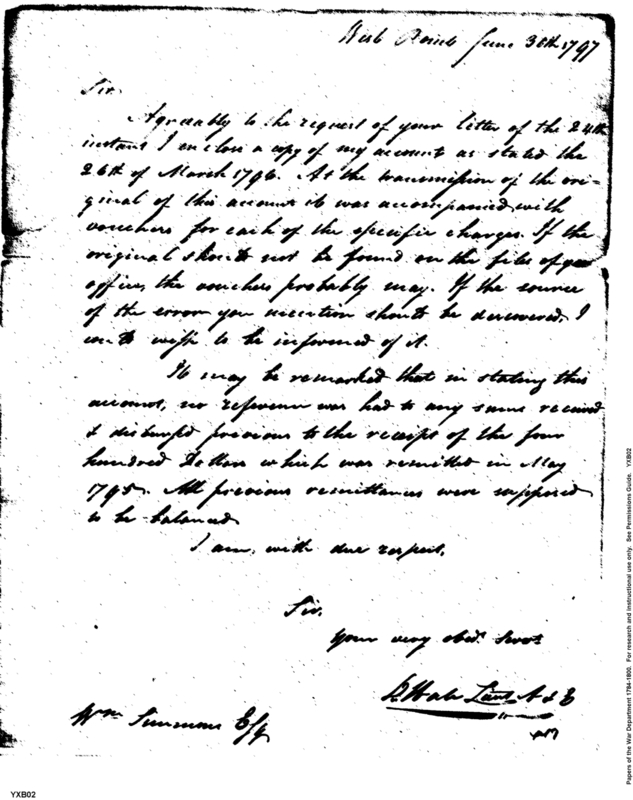 West Point June 30th 1797
Sir.
Agreeably to the request of your letter of the 24th
instant I enclose a copy of my account as stated the
26th of March 1796. At the transmission of the ori-
ginal of this account it was accompanied with
vouchers for each of the specific charges. If the
original should not be found on the files of your
office, the vouchers probably may. If the source
of the error you mention should be discovered, I
could wish to be informed of it.
It may be remarked that in stating this
account, no reference was had to any sums received
& disbursed previous to the receipt of the four
hundred Dollars which was remitted in May
1795. All previous remittances were supposed
to be balanced
I am, with due respect,
Sir,
Your very obedt. Servt
Lieut A & E
Wm Simmons Esq
Papers of the War Department 1784-1800. For research and instructional use only. See Permissions Guide. YXB02
YXB02